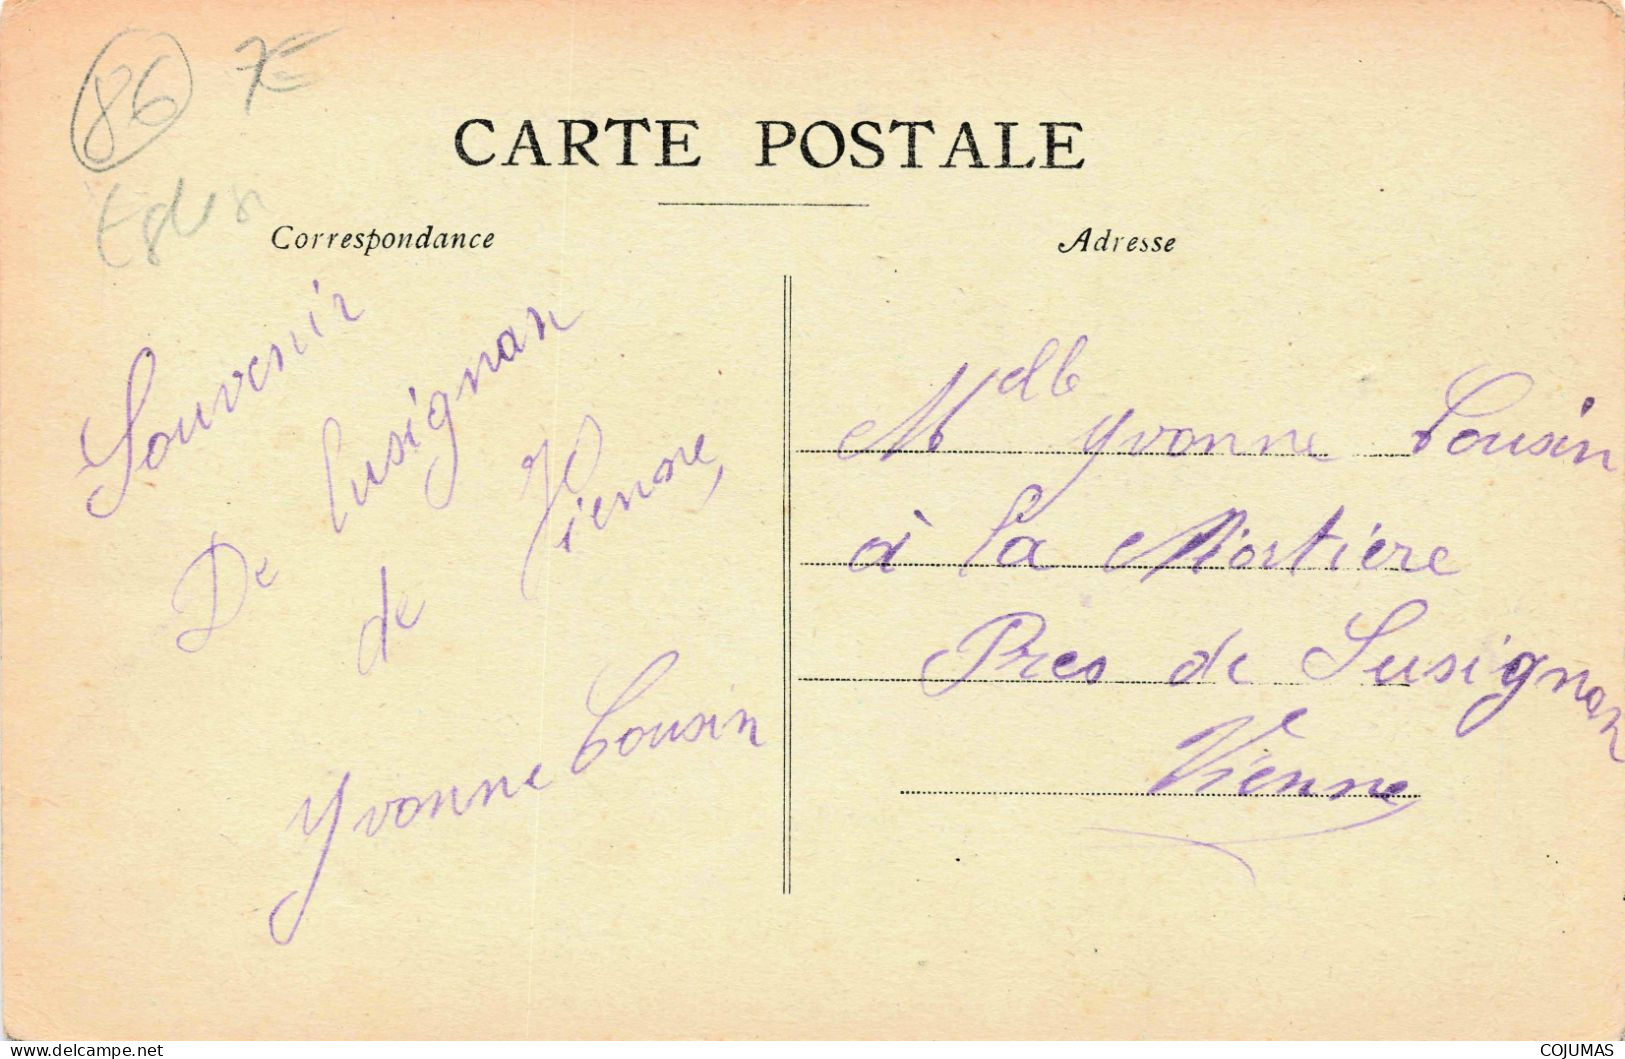 86 7€
CARTE POSTALE
Correspondance
Souvenir
De Lusignan
de Vienne,
Yvonne Cousin
Adresse
Melle Yvonne Cousin
à La Mortière
Pres de Lusignan
Vienne
delcampe.net
COJUMAS